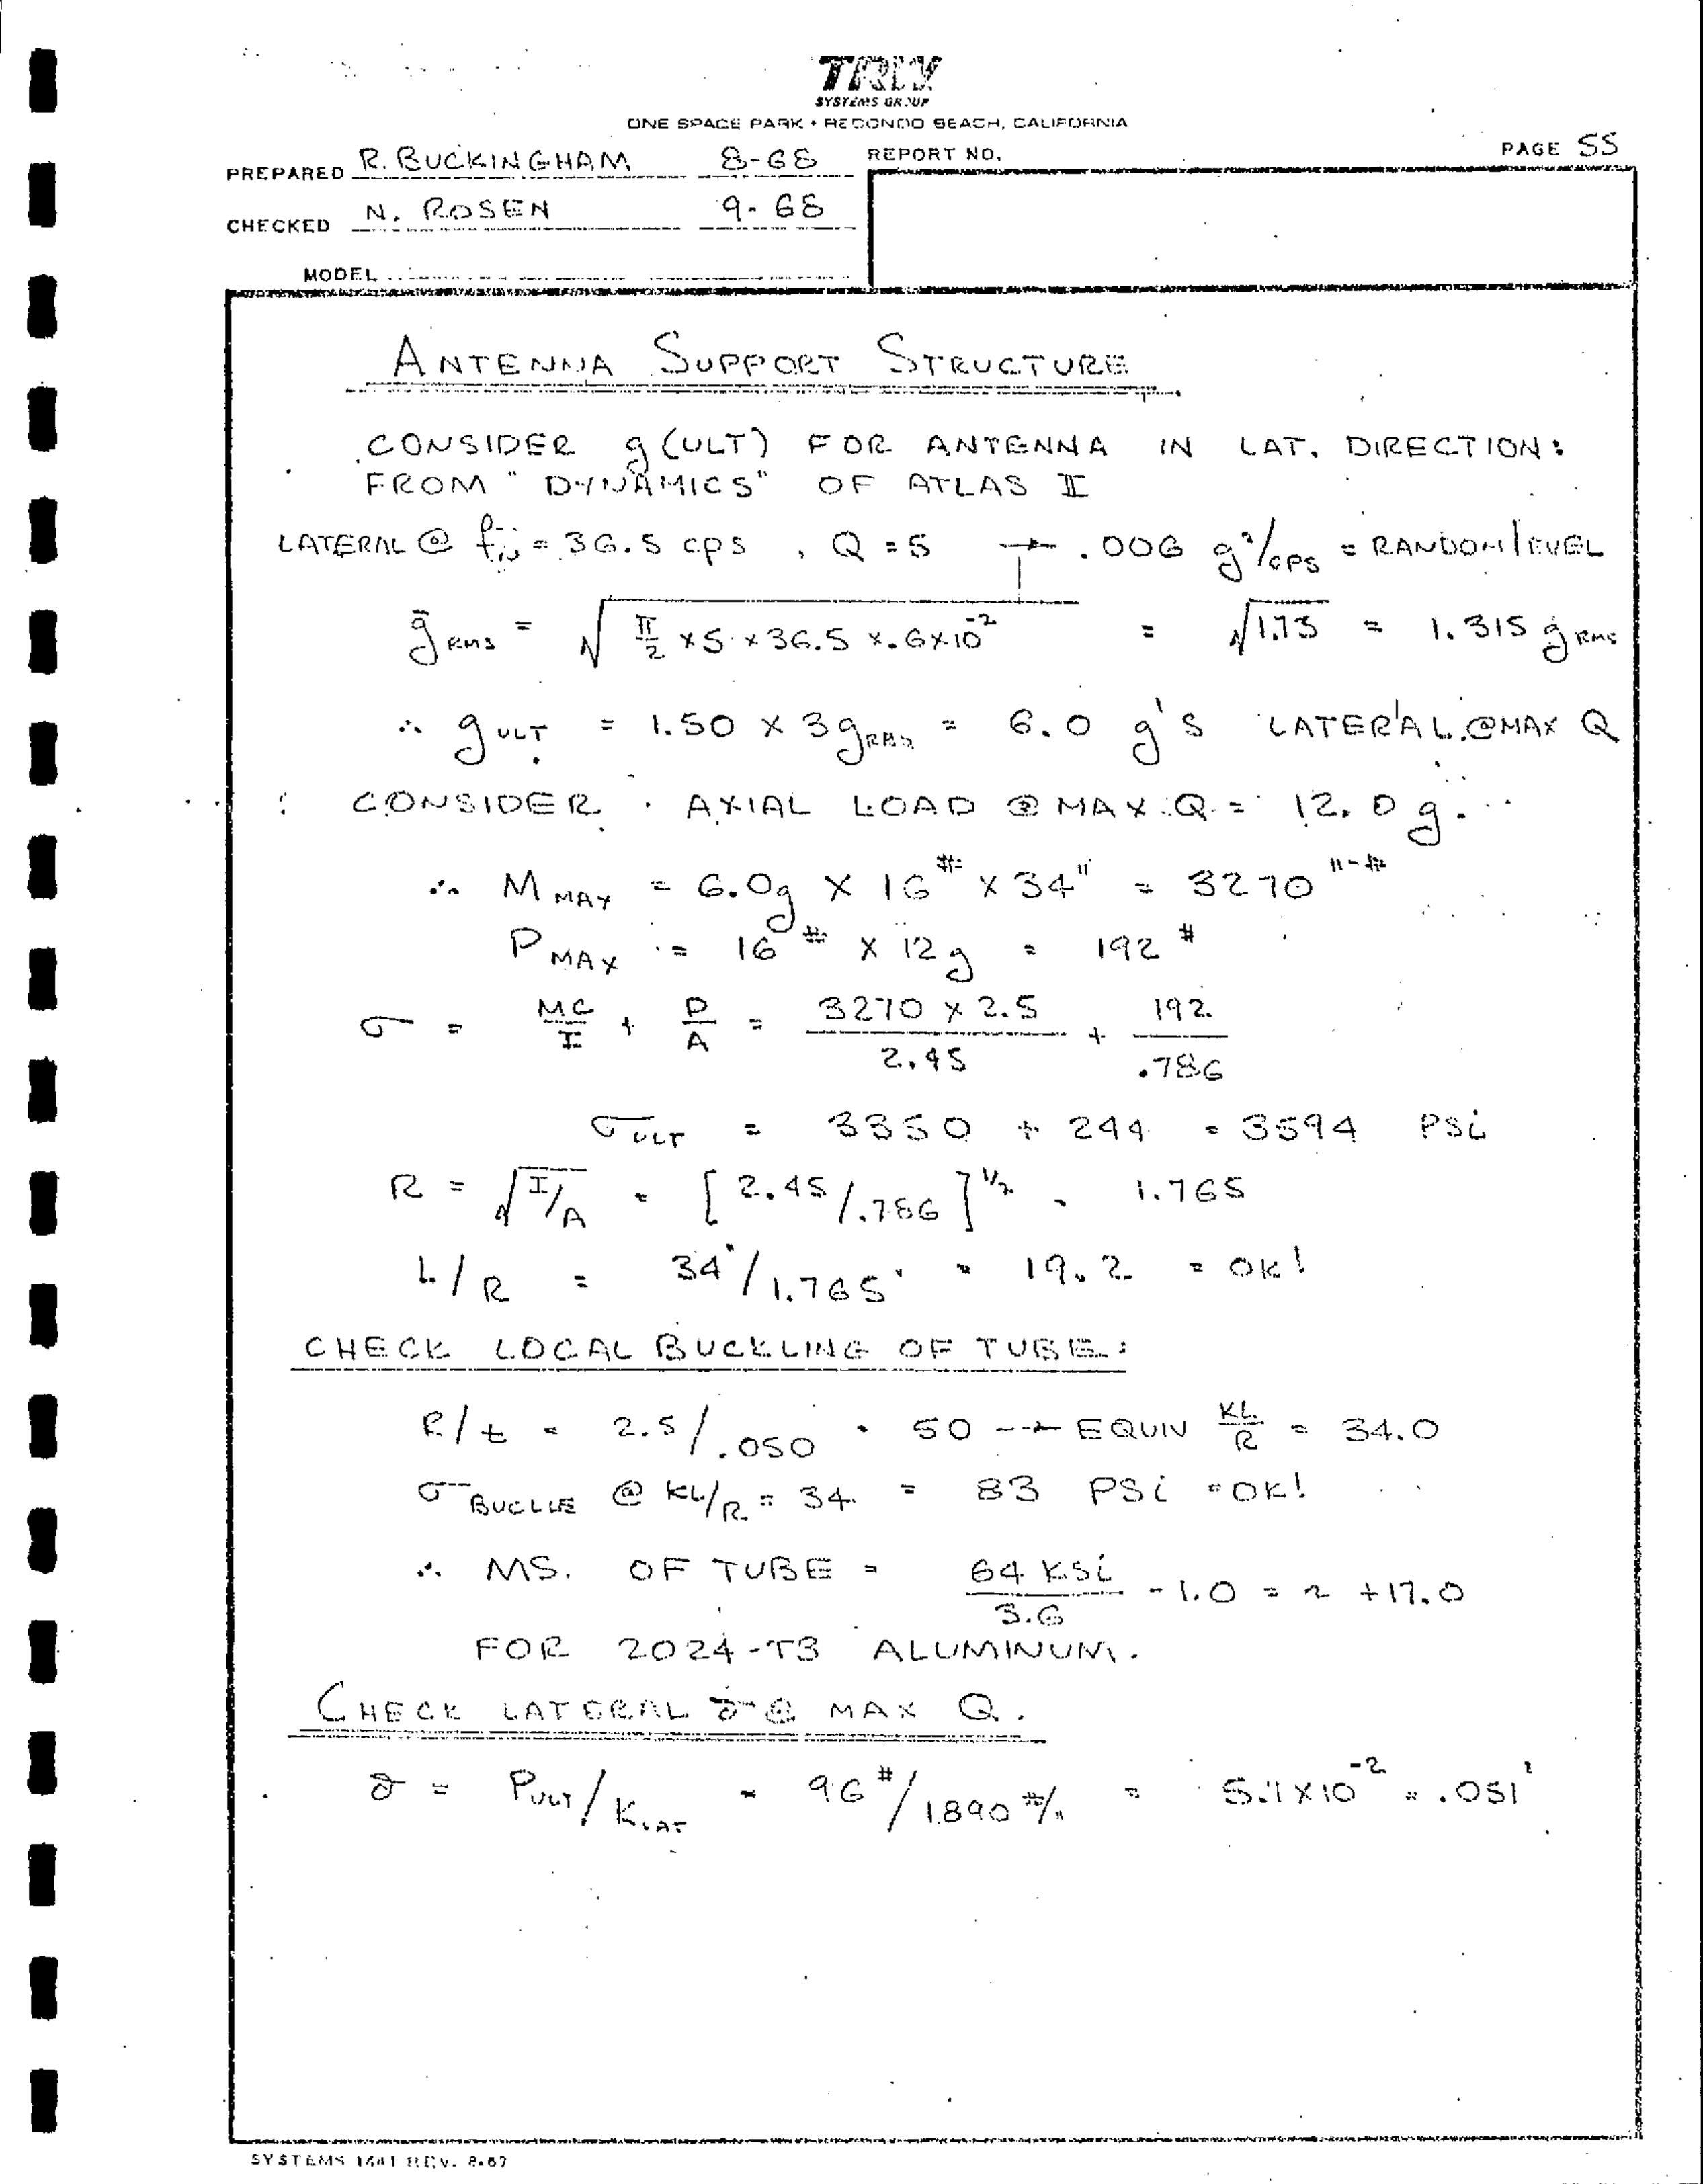 TRW
SYSTEMS GROUP
ONE SPACE PARK • REDONDO BEACH, CALIFORNIA
PREPARED R. BUCKINGHAM 8-68 REPORT NO. PAGE 55
CHECKED N. ROSEN 9-68
MODEL
ANTENNA SUPPORT STRUCTURE
CONSIDER g (ULT) FOR ANTENNA IN LAT. DIRECTION:
FROM "DYNAMICS" OF ATLAS II
LATERAL @ fₙ = 36.5 cps , Q = 5 → .006 g²/cps = RANDOM LEVEL
g̅ RMS = √(π/2 × 5 × 36.5 × .6×10⁻²) = √1.73 = 1.315 g RMS
∴ g ULT. = 1.50 × 3 g RMS = 6.0 g's LATERAL @ MAX Q
CONSIDER AXIAL LOAD @ MAX Q = 12.0 g.
∴ M MAX = 6.0g × 16# × 34" = 3270 "-#
P MAX = 16# × 12g = 192#
σ = MC/I + P/A = 3270 × 2.5/2.45 + 192./.786
σ ULT = 3350 + 244 = 3594 PSi
R = √I/A = [2.45/.786]^1/2 = 1.765
L/R = 34"/1.765" = 19.2 = OK!
CHECK LOCAL BUCKLING OF TUBE:
R/t = 2.5/.050 = 50 → EQUIV KL/R = 34.0
σ BUCLLE @ KL/R = 34 = 83 PSi = OK!
∴ MS. OF TUBE = 64 KSi/3.6 - 1.0 = ~ +17.0
FOR 2024-T3 ALUMINUM.
CHECK LATERAL δ @ MAX Q.
δ = P ULT/K LAT = 96#/1890 #/" = 5.1×10⁻² = .051"
SYSTEMS 1441 REV. 8-67